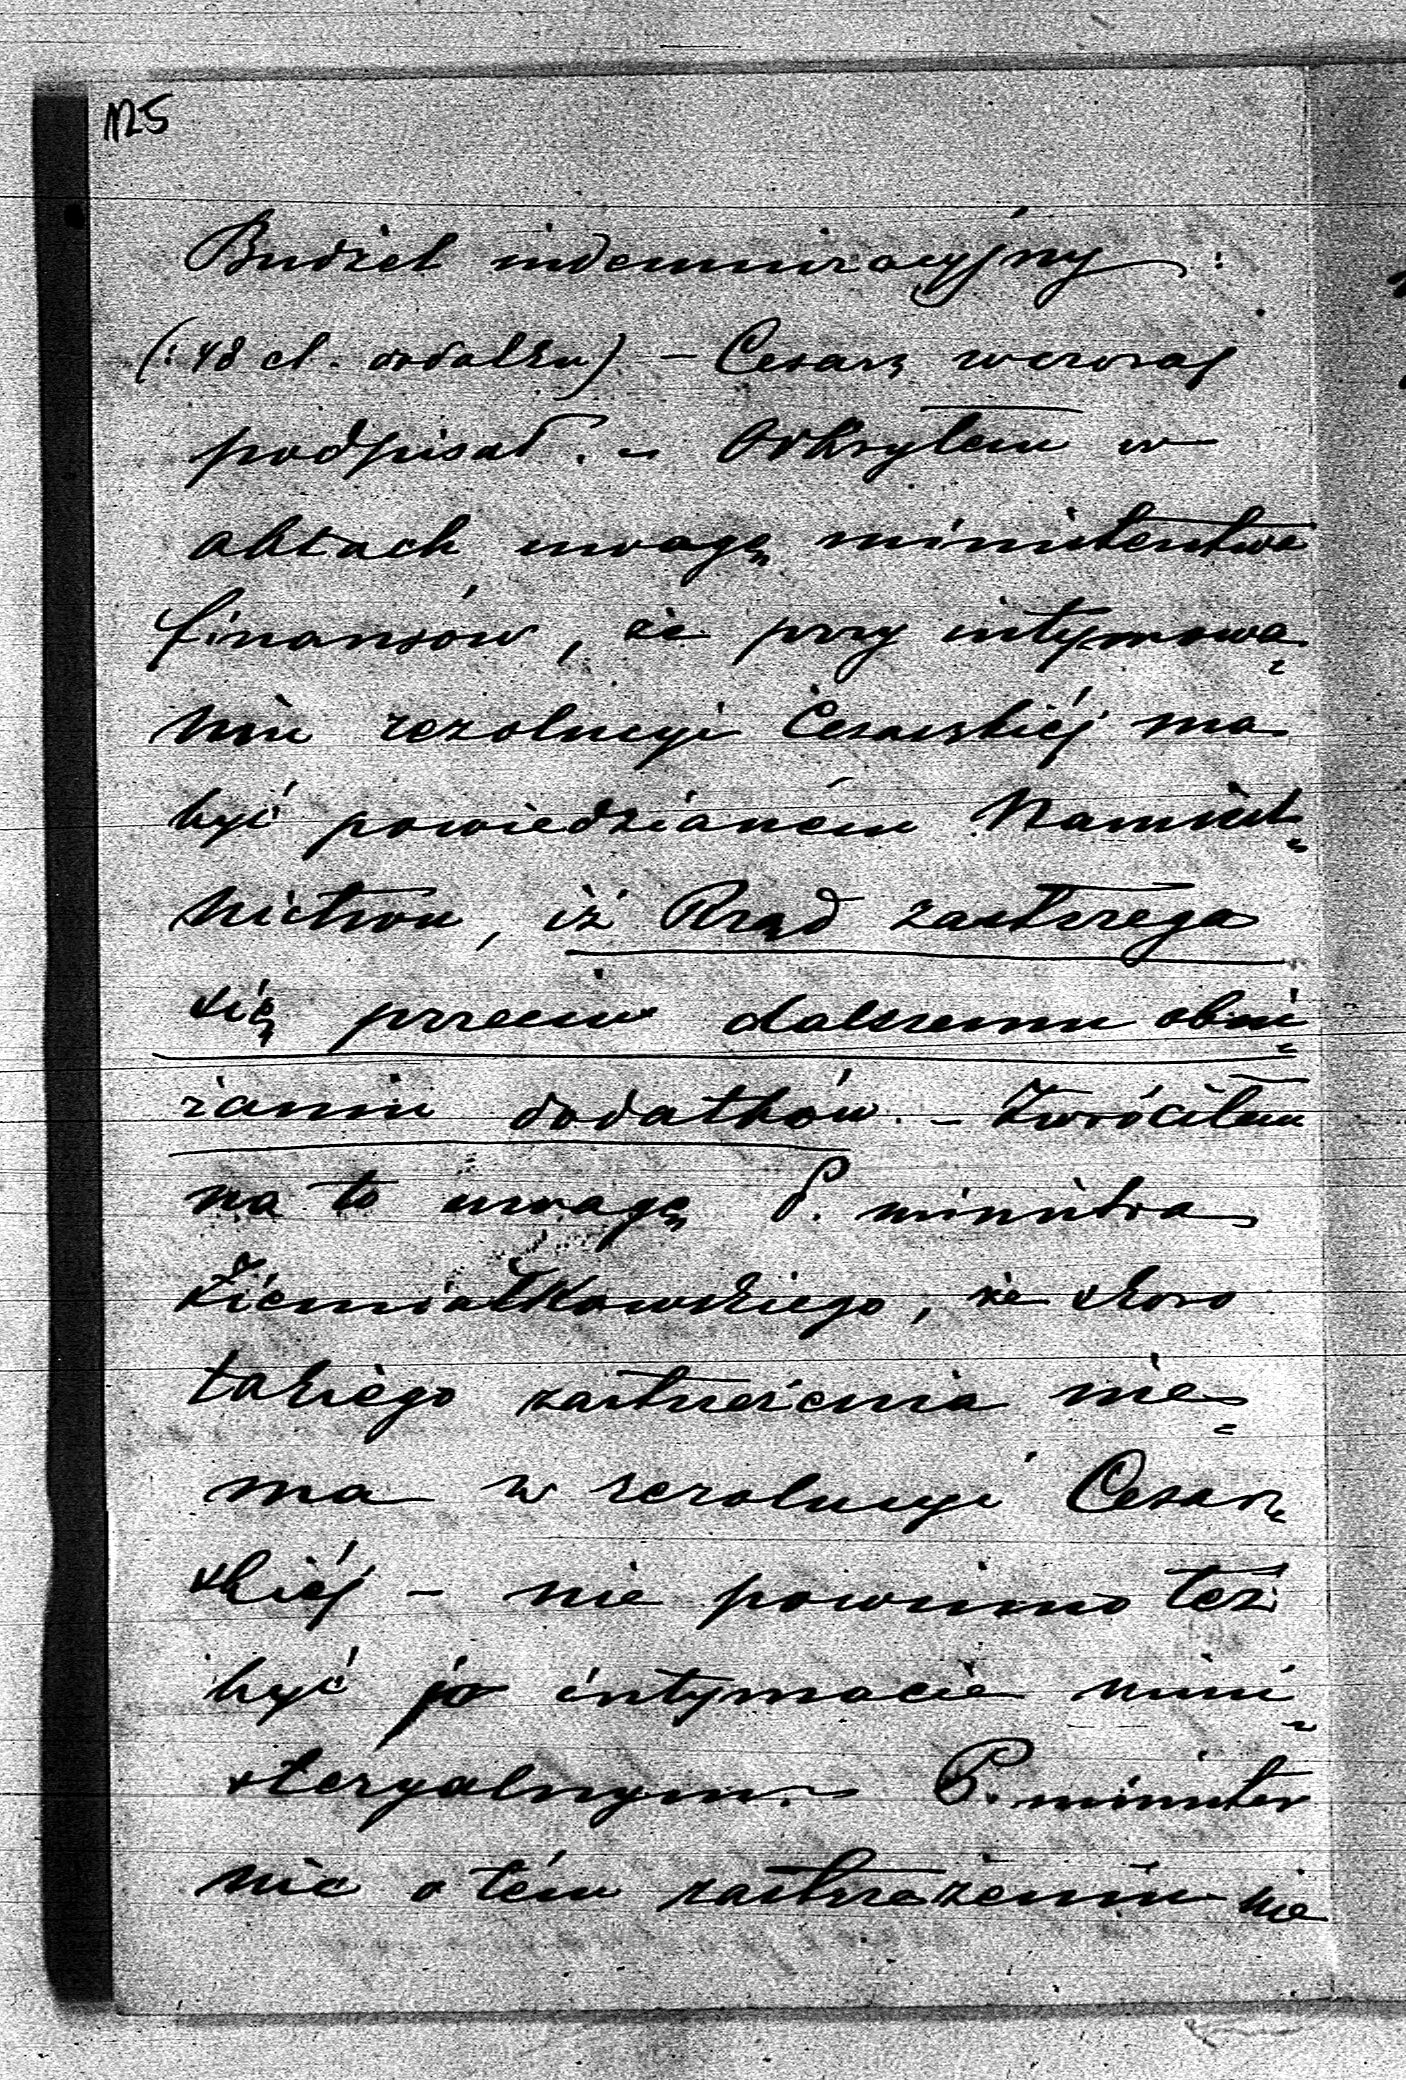 125
Budżet indemnizacyjny :
(: 48 ct. dodatku) – Cesarz wczoraj
podpisał. – Odkryłem w
aktach uwagę ministerstwa
finansów, że przy intymowa=
niu rezolucyi Cesarskiéj ma
być powiedzianém Namiest=
nictwu, iż Rząd zastrzega
się przeciw dalszemu obni=
żaniu dodatków. – Zwróciłem
na to uwagę P. ministra
Ziemiałkowskiego, że skoro
takiego zastrzeżenia nie=
ma w rezolucyi Cesar=
skiéj – nie powinno też
być po intymacie mini=
steryalnym. – P. minister
nic o tém zastrzeżeniu nie